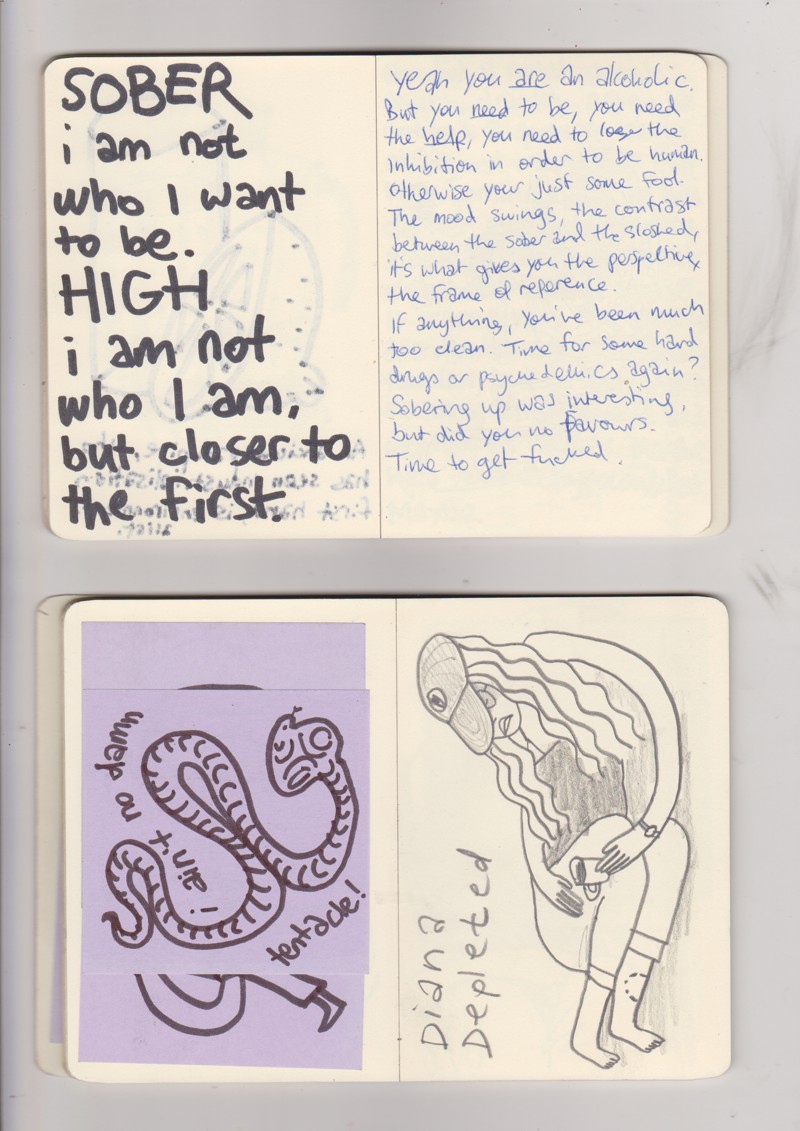 SOBER
i am not
who I want
to be.
HIGH
i am not
who I am,
but closer to
the first.
yeah you are an alcoholic.
But you need to be, you need
the help, you need to lose the
inhibition in order to be human.
otherwise your just some fool.
The mood swings, the contrast
between the sober and the sloshed,
it's what gives you the perspective,
the frame of reference.
If anything, you've been much
too clean. Time for some hard
drugs or psychedelics again?
Sobering up was interesting,
but did you no favours.
Time to get fucked.
i ain't
no damn
tentacle!
Diana
Depleted